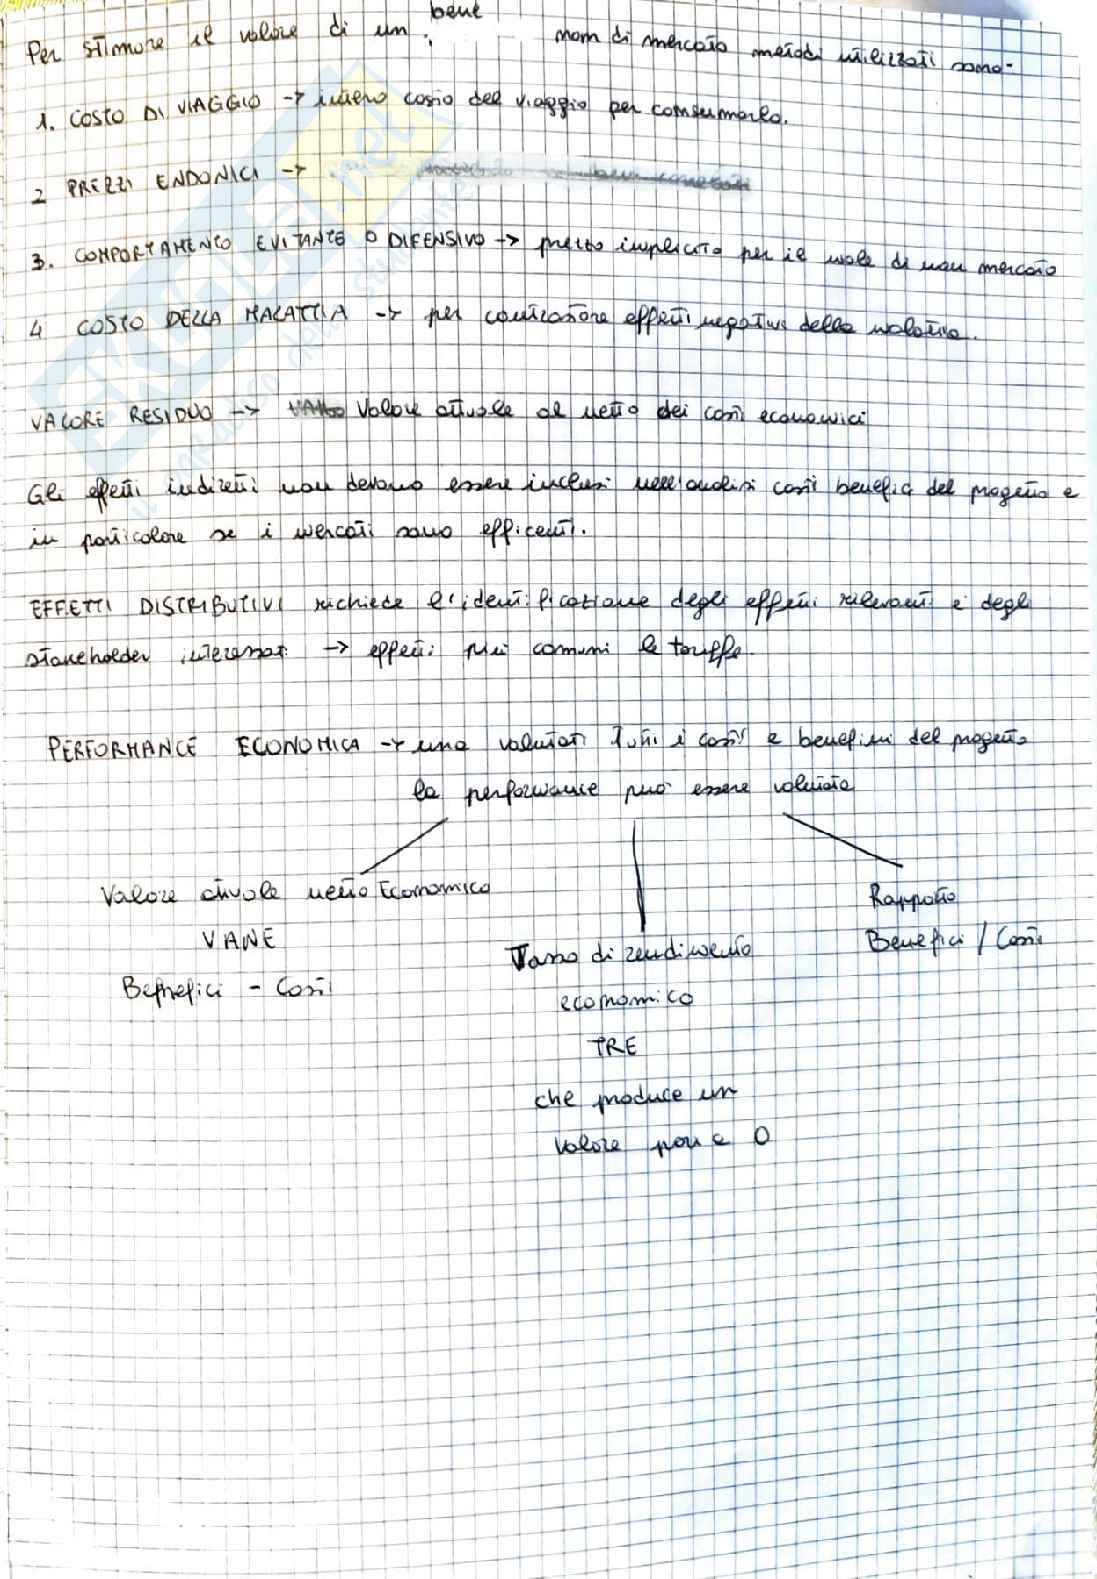 bene
Per stimare il valore di un non di mercato metodi utilizzati sono:
1. COSTO DI VIAGGIO → intero costo del viaggio per consumarlo.
2 PREZZI ENDONICI →
3. COMPORTAMENTO EVITANTE O DIFENSIVO → prezzo implicito per il male di non mercato
4 COSTO DELLA MALATTIA → per effetti negativi della malattia.
VALORE RESIDUO → Valore attuale al netto dei costi economici
Gli effetti indiretti non devono essere inclusi nell'analisi costi benefici del progetto e
in particolare se i mercati sono efficenti.
EFFETTI DISTRIBUTIVI richiede l'identificazione degli effetti rilevanti e degli
stakeholder interessati → effetti più comuni le tariffe.
PERFORMANCE ECONOMICA → una valutati tutti i costi e benefici del progetto
la performance può essere valutata
Valore attuale netto Economico
VANE
Benefici - Costi
Tasso di rendimento
economico
TRE
che produce un
valore pari a 0
Rapporto
Benefici / Costi